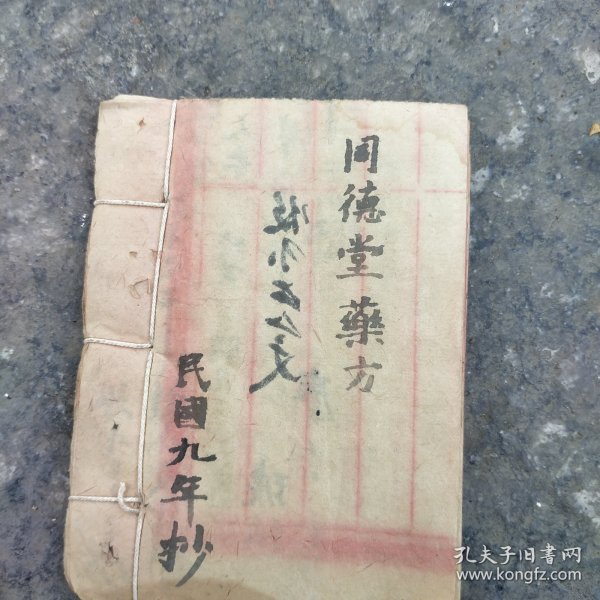 同德堂藥方
民國九年抄
孔夫子旧书网
www.kongfz.com